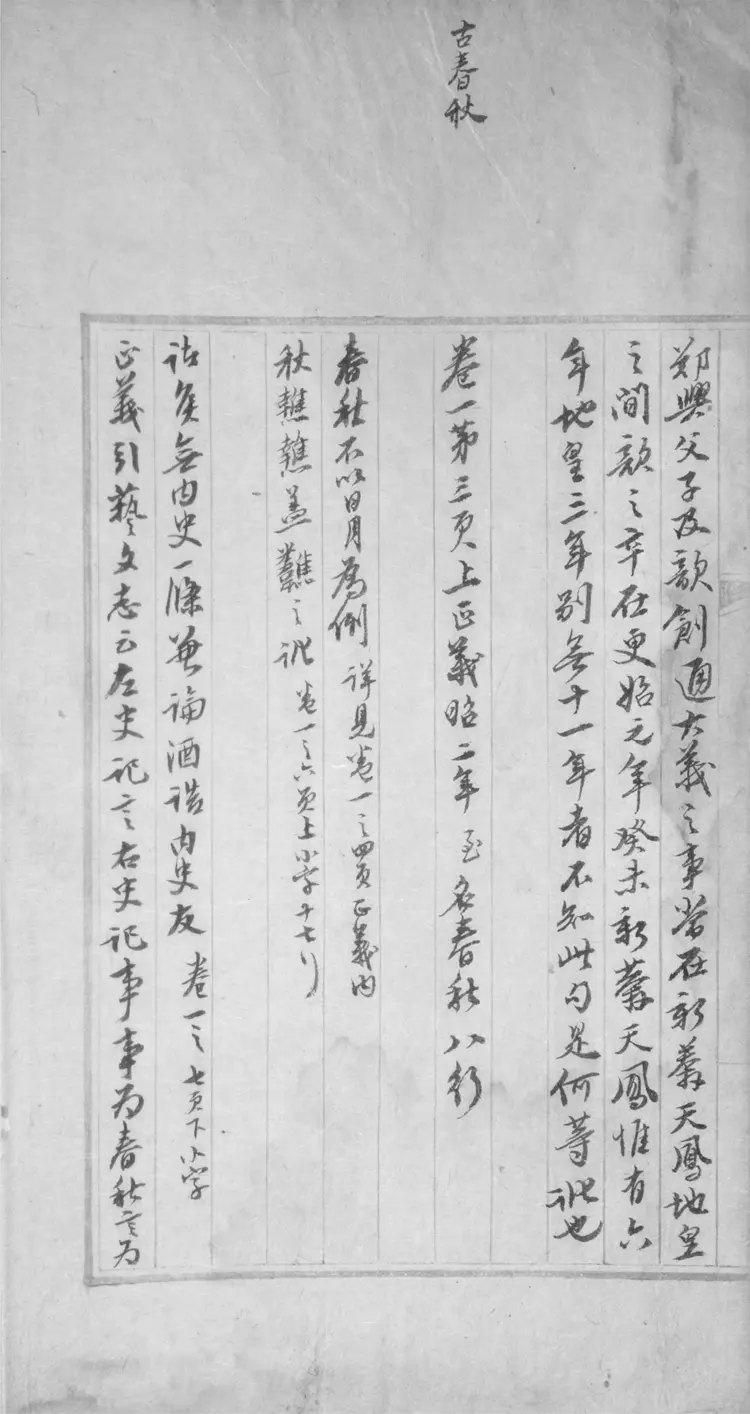 古春秋
鄭興父子及歆創通大義之事當在新莽天鳳地皇
之間歆之卒在更始元年癸未新莽天鳳惟有六
年地皇三年別無十一年者不知此句是何等訛也
卷一第三頁上正義昭二年至名春秋八行
春秋不以日月為例 詳見卷一之四頁正義內
秋 蓋 之訛 卷一之六頁上小字十七行
諸侯無內史一條兼論酒誥內史友 卷一之七頁下小字
正義引藝文志云左史記言右史記事事为春秋言为